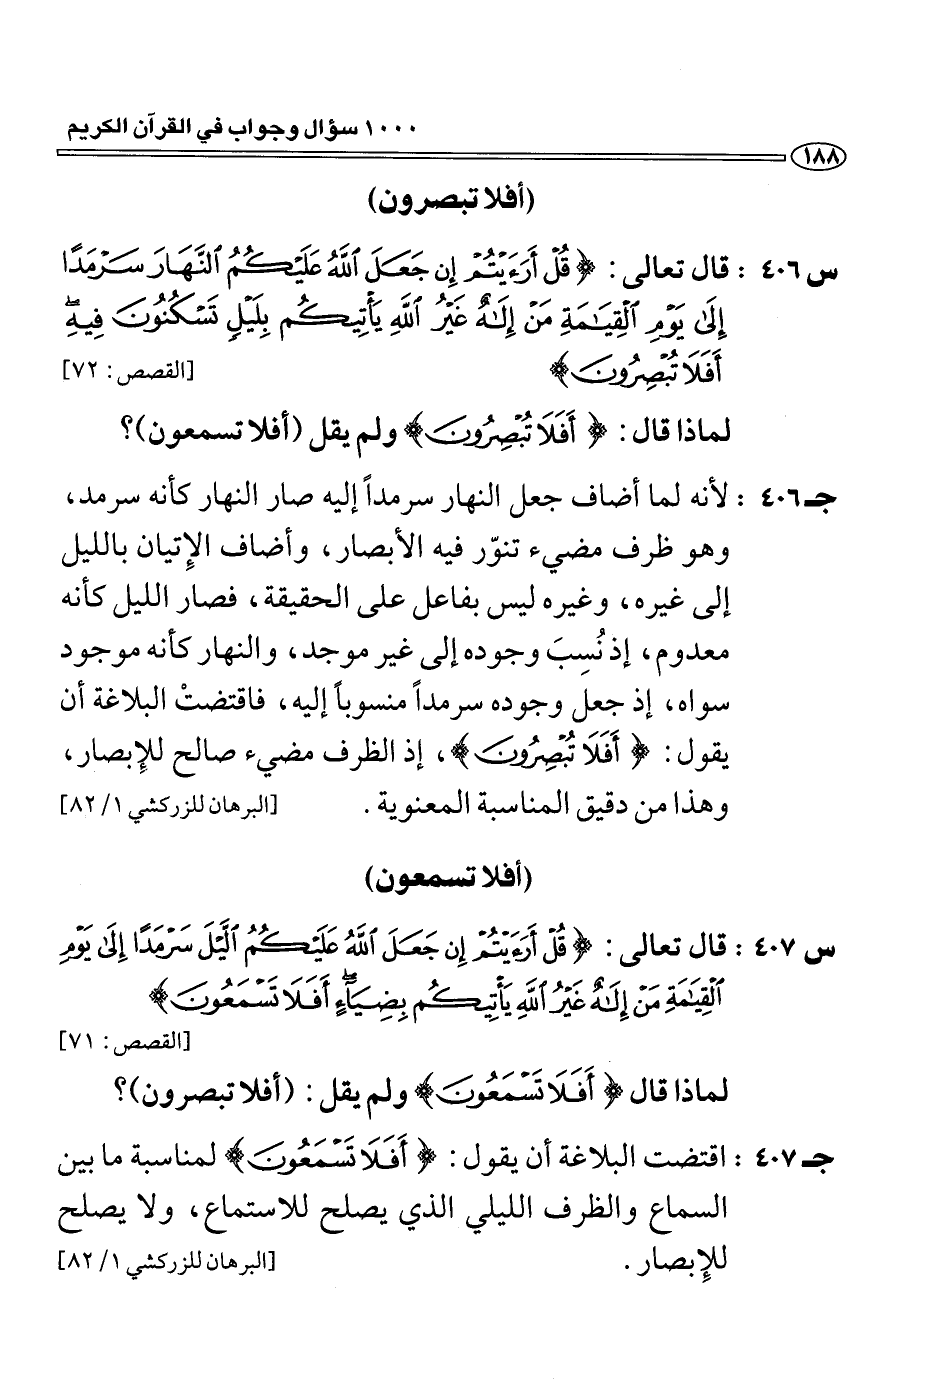 ١٠٠٠ سؤال وجواب في القرآن الكريم
١٨٨
(أفلا تبصرون)
س ٤٠٦ : قال تعالى : ﴿ قُلْ أَرَءَيْتُمْ إِن جَعَلَ ٱللَّهُ عَلَيْكُمُ ٱلنَّهَارَ سَرْمَدًا
إِلَىٰ يَوْمِ ٱلْقِيَـٰمَةِ مَنْ إِلَـٰهٌ غَيْرُ ٱللَّهِ يَأْتِيكُم بِلَيْلٍ تَسْكُنُونَ فِيهِ ۖ
أَفَلَا تُبْصِرُونَ ﴾ [القصص : ٧٢]
لماذا قال : ﴿ أَفَلَا تُبْصِرُونَ ﴾ ولم يقل (أفلا تسمعون)؟
جـ ٤٠٦ : لأنه لما أضاف جعل النهار سرمداً إليه صار النهار كأنه سرمد،
وهو ظرف مضيء تنوّر فيه الأبصار، وأضاف الإتيان بالليل
إلى غيره، وغيره ليس بفاعل على الحقيقة، فصار الليل كأنه
معدوم، إذ نُسِبَ وجوده إلى غير موجد، والنهار كأنه موجود
سواه، إذ جعل وجوده سرمداً منسوباً إليه، فاقتضتْ البلاغة أن
يقول : ﴿ أَفَلَا تُبْصِرُونَ ﴾، إذ الظرف مضيء صالح للإبصار،
وهذا من دقيق المناسبة المعنوية . [البرهان للزركشي ١/ ٨٢]
(أفلا تسمعون)
س ٤٠٧ : قال تعالى : ﴿ قُلْ أَرَءَيْتُمْ إِن جَعَلَ ٱللَّهُ عَلَيْكُمُ ٱلَّيْلَ سَرْمَدًا إِلَىٰ يَوْمِ
ٱلْقِيَـٰمَةِ مَنْ إِلَـٰهٌ غَيْرُ ٱللَّهِ يَأْتِيكُم بِضِيَآءٍ ۖ أَفَلَا تَسْمَعُونَ ﴾
[القصص : ٧١]
لماذا قال ﴿ أَفَلَا تَسْمَعُونَ ﴾ ولم يقل : (أفلا تبصرون)؟
جـ ٤٠٧ : اقتضت البلاغة أن يقول : ﴿ أَفَلَا تَسْمَعُونَ ﴾ لمناسبة ما بين
السماع والظرف الليلي الذي يصلح للاستماع، ولا يصلح
للإبصار . [البرهان للزركشي ١/ ٨٢]